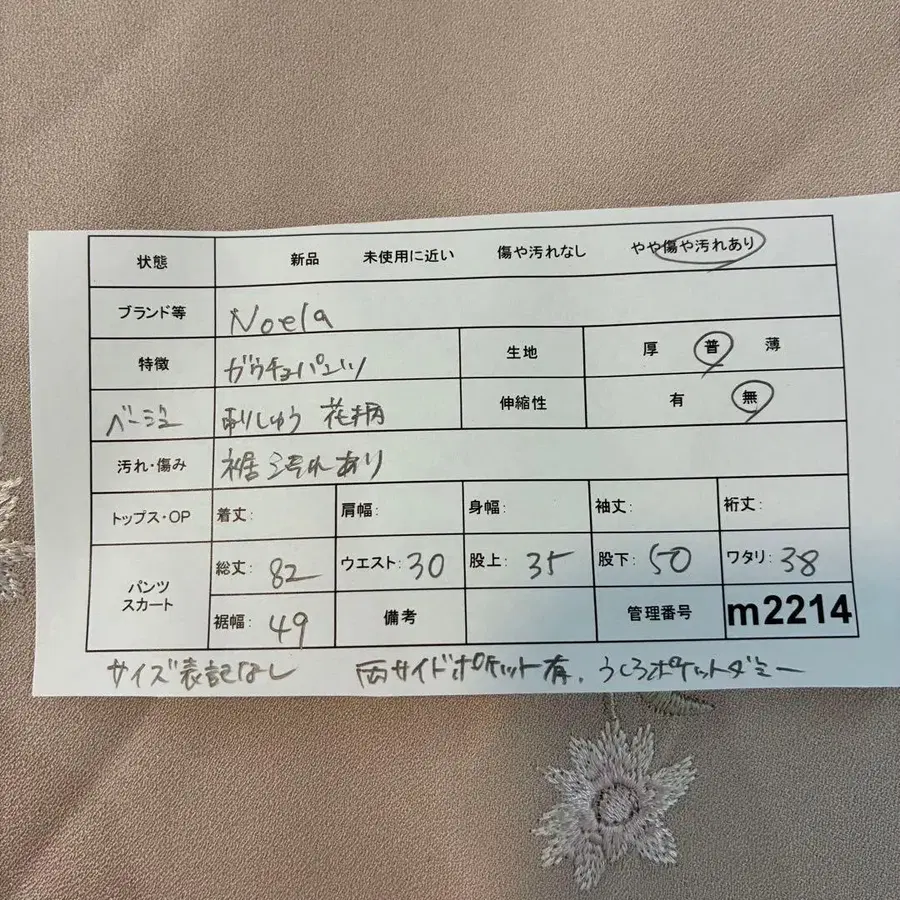 状態 新品 未使用に近い 傷や汚れなし やや傷や汚れあり
ブランド等 Noela
特徴 ガウチョパンツ 生地 厚 普 薄
ベージュ 刺しゅう 花柄 伸縮性 有 無
汚れ・傷み 裾汚れあり
トップス・OP 着丈: 肩幅: 身幅: 袖丈: 裄丈:
パンツ スカート 総丈: 82 ウエスト: 30 股上: 35 股下: 50 ワタリ: 38
裾幅: 49 備考 管理番号 m2214
サイズ表記なし 両サイドポケット有、うしろポケットダミー